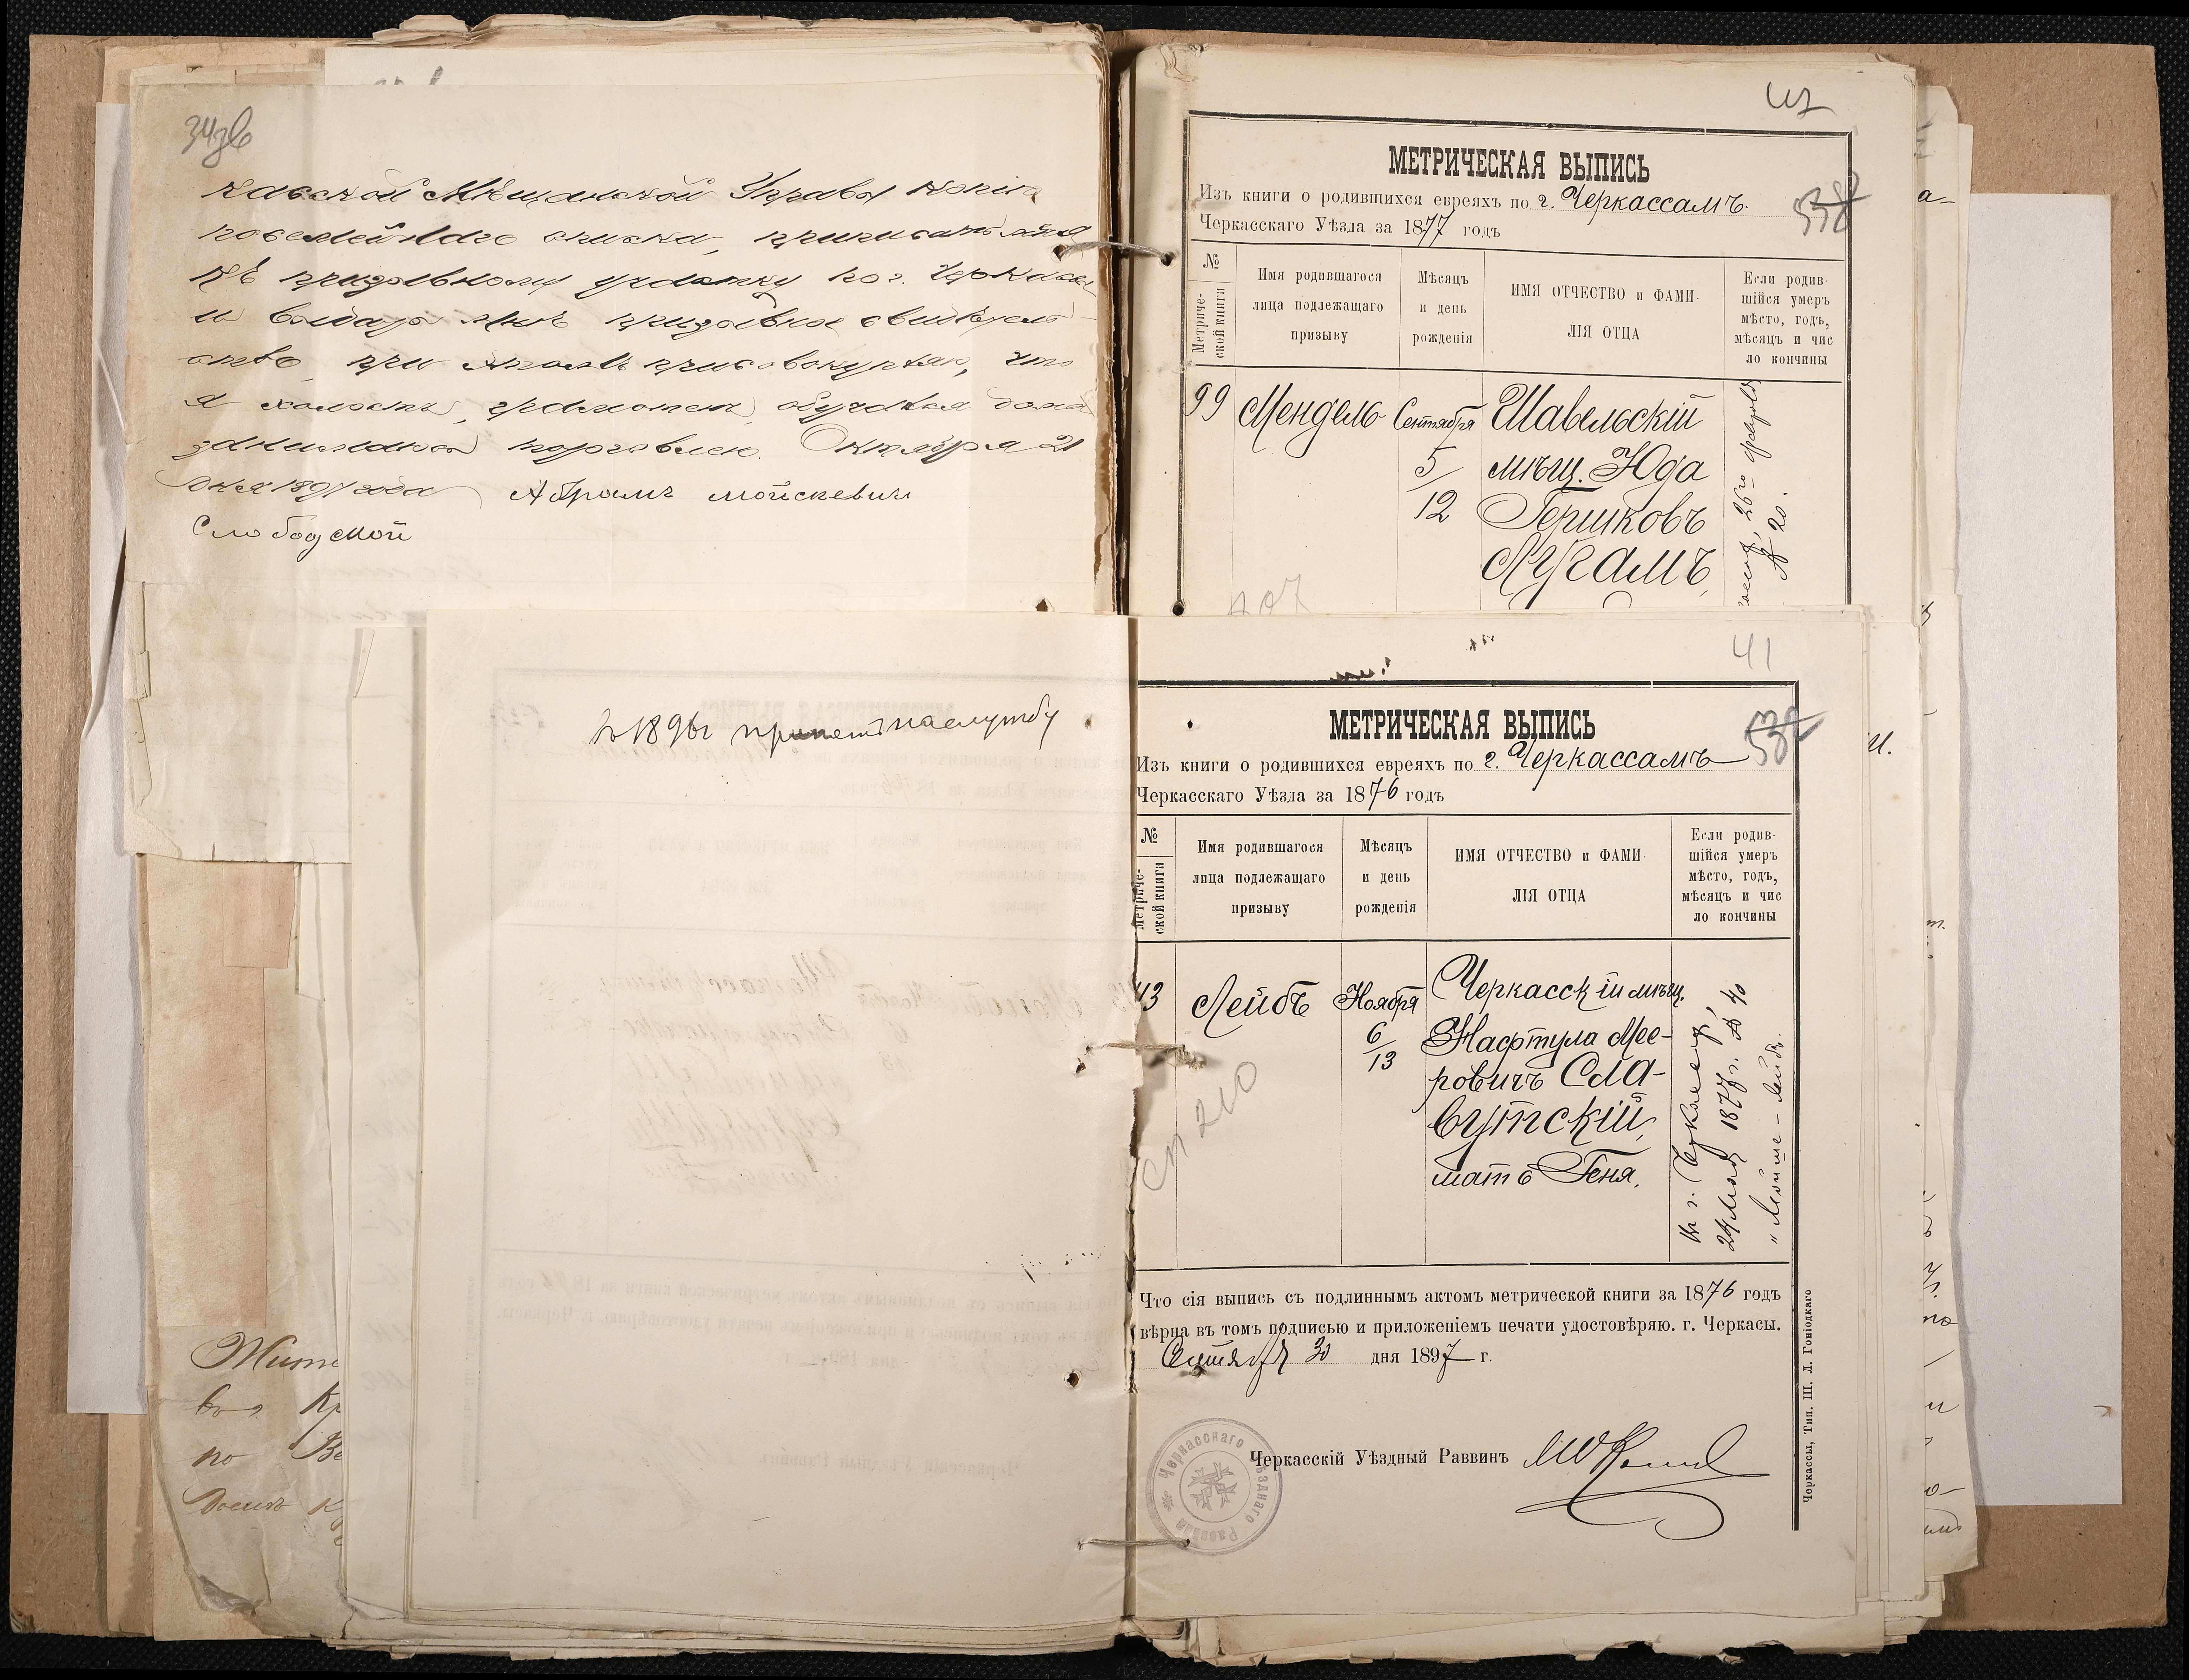 34зв
касской Мѣщанской Управы копію
посемейнаго списка, приписать меня
къ призывному участку по г. Черкассы
и выдать мнѣ призывное свидѣтель-
ство при этомъ присовокупляю, что
я холостъ, грамотенъ, обучался дома
занимаюсь торговлею. Октября 21
дня 1897 года Абрамъ Мойсеевичъ
Слободской
МЕТРИЧЕСКАЯ ВЫПИСЬ
538
Изъ книги о родившихся евреяхъ по г. Черкассамъ.
Черкасскаго Уѣзда за 1877 годъ
№ Метриче-
ской книги
Имя родившагося
лица подлежащаго
призыву
Мѣсяцъ
и день
рожденія
ИМЯ ОТЧЕСТВО и ФАМИ-
ЛІЯ ОТЦА
Если родив-
шійся умеръ
мѣсто, годъ,
мѣсяцъ и чис
ло кончины
99 Мендель Сентября
5/12
Шавельскій
мѣщ. Юда
Гершковъ
Лугамъ,
№ 20.
407
в 1896г принятъ на службу
41
МЕТРИЧЕСКАЯ ВЫПИСЬ
538
Изъ книги о родившихся евреяхъ по г. Черкассамъ
Черкасскаго Уѣзда за 1876 годъ
№ Метриче-
ской книги
Имя родившагося
лица подлежащаго
призыву
Мѣсяцъ
и день
рожденія
ИМЯ ОТЧЕСТВО и ФАМИ-
ЛІЯ ОТЦА
Если родив-
шійся умеръ
мѣсто, годъ,
мѣсяцъ и чис
ло кончины
43 Лейбъ Ноября
6/13
Черкасскій мѣщ.
Нафтула Мее-
ровичъ Сла-
вутскій,
мать Геня.
24 Мая 1877 г. № 40
"Мойше-Лейбъ"
сп 210
Что сія выпись съ подлиннымъ актомъ метрической книги за 1876 годъ
вѣрна въ томъ подписью и приложеніемъ печати удостовѣряю. г. Черкасы.
Сентября 30 дня 1897 г.
Черкасскій Уѣздный Раввинъ
Черкасскаго Уѣзднаго Раввина
Черкассы, Тип. Ш. Л. Гоніодкаго
Жит
во Кр
по Ве